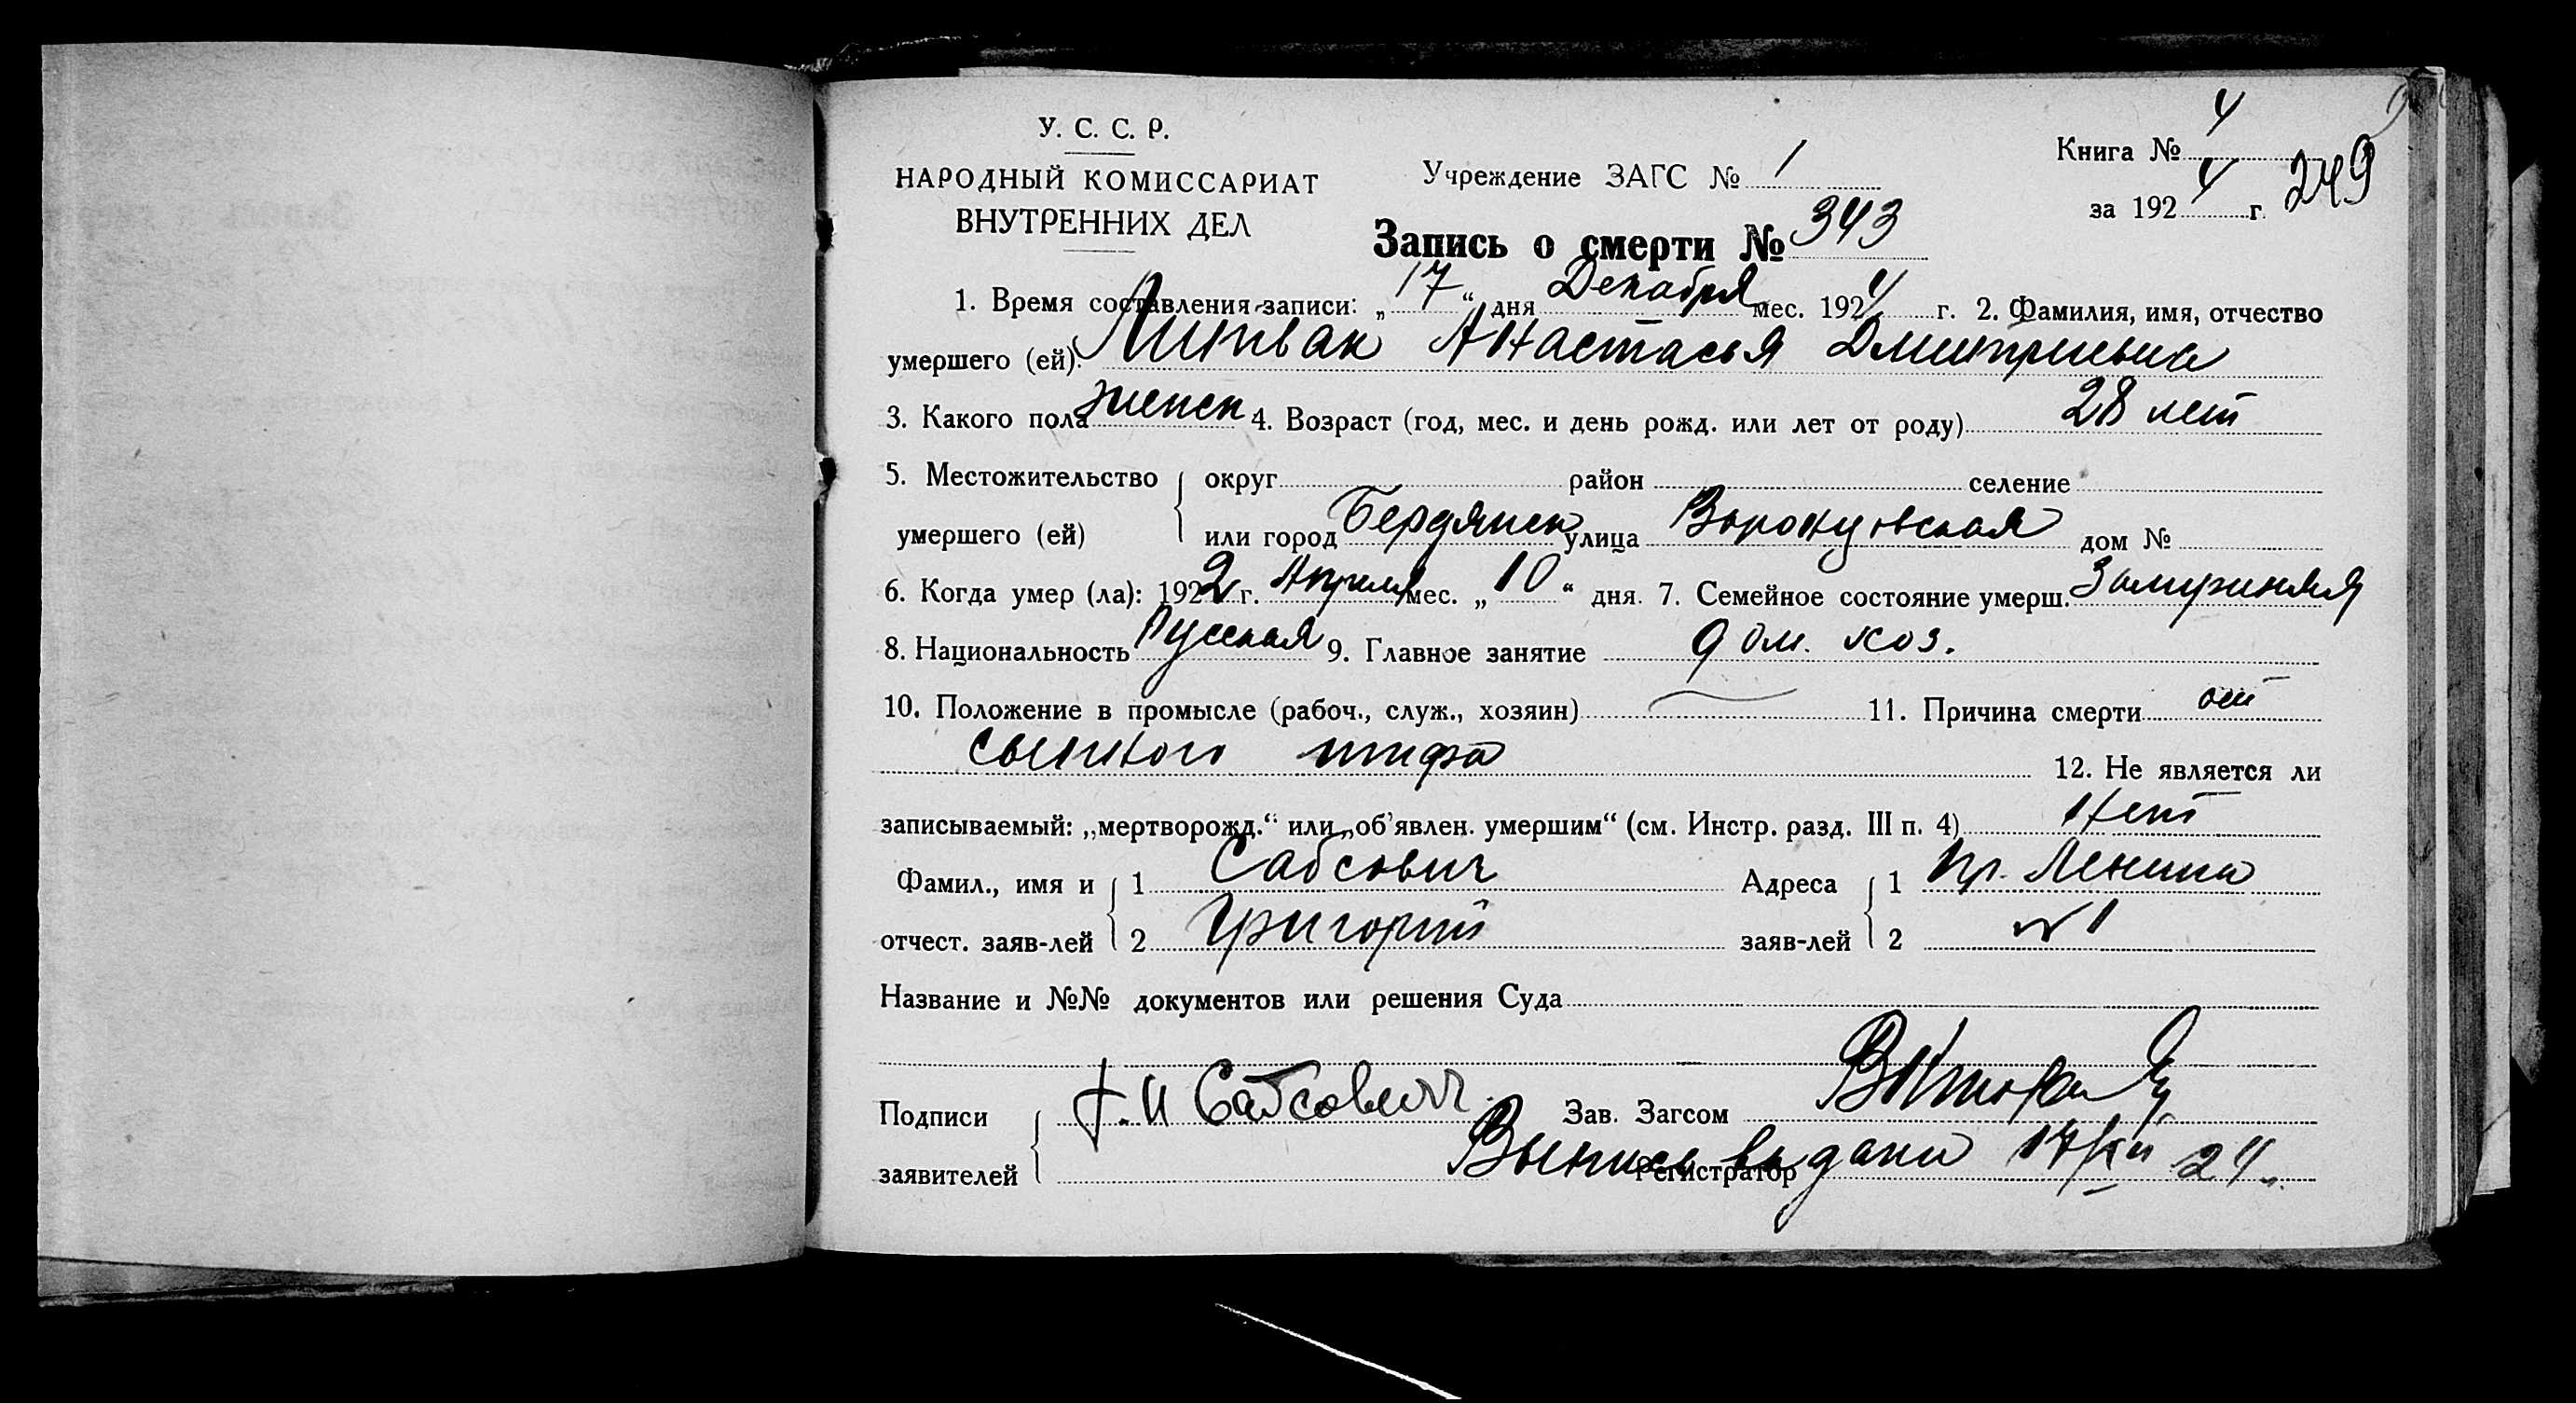 У. С. С. Р.
НАРОДНЫЙ КОМИССАРИАТ
ВНУТРЕННИХ ДЕЛ
Учреждение ЗАГС № 1
Книга № 4
за 1924 г. 249
Запись о смерти № 343
1. Время составления записи: „17“ дня Декабря мес. 1924 г. 2. Фамилия, имя, отчество
умершего (ей): Литвак Анастасья Дмитриевна
3. Какого пола женск 4. Возраст (год, мес. и день рожд. или лет от роду) 28 лет
5. Местожительство умершего (ей) { округ район селение
или город Бердянск улица дом №
6. Когда умер (ла): 1922 г. Апреля мес. „10“ дня. 7. Семейное состояние умерш. Замужняя
8. Национальность Русская 9. Главное занятие дом. хоз.
10. Положение в промысле (рабоч., служ., хозяин) 11. Причина смерти от
сыпного тифа 12. Не является ли
записываемый: „мертворожд.“ или „об’явлен. умершим“ (см. Инстр. разд. III п. 4) Нет
Фамил., имя и { 1 Сабсович Адреса { 1 пр. Ленина
отчест. заяв-лей { 2 Григорий заяв-лей { 2 № 1
Название и №№ документов или решения Суда
Подписи Г. И Сабсович. Зав. Загсом
заявителей Регистратор
Выпись выдана 17/XII 24